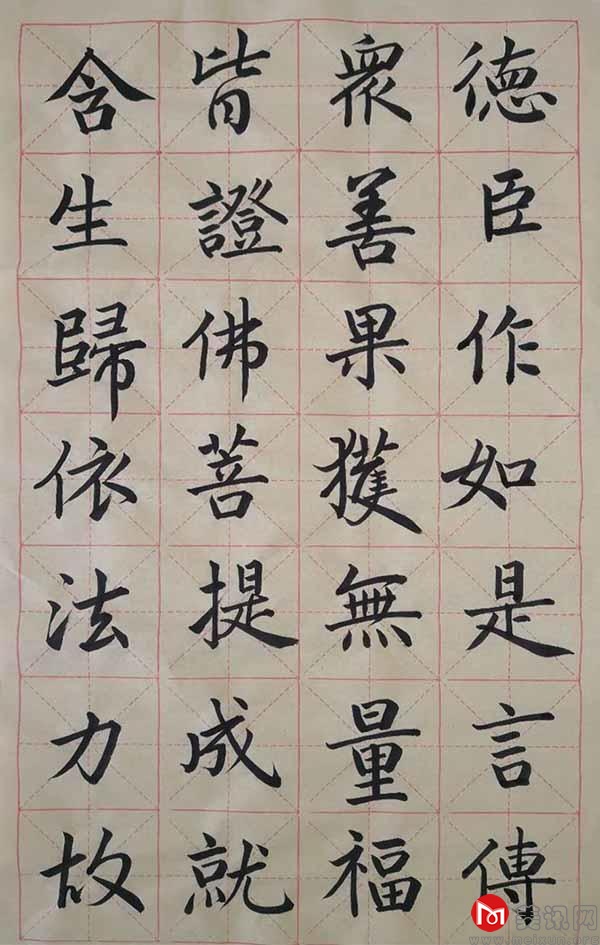 德臣作如是言傳
衆善果獲無量福
皆證佛菩提成就
含生歸依法力故
美讯网